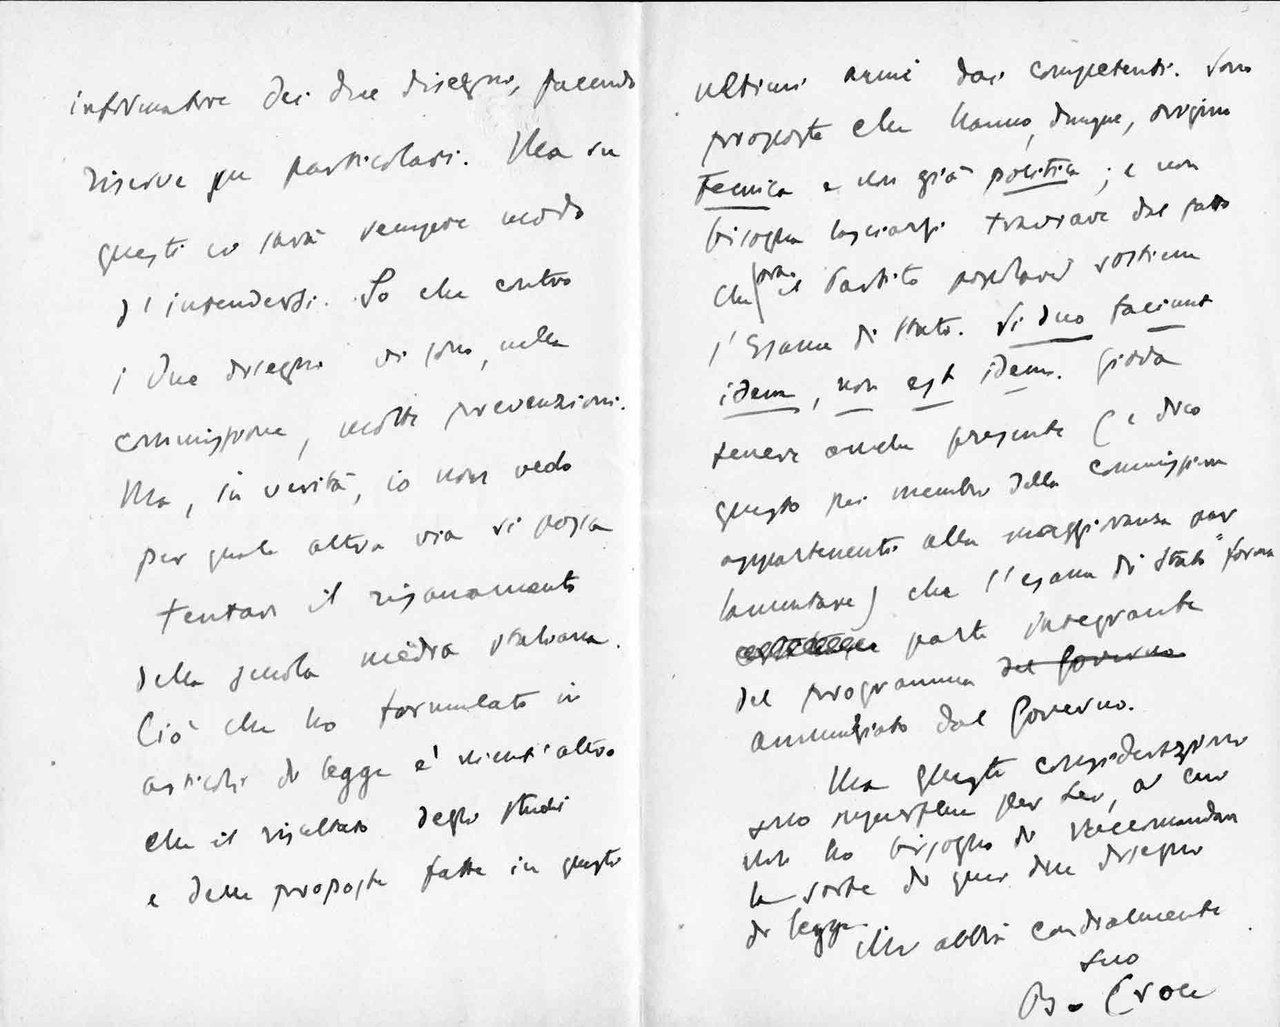 informatore dei due disegni, facendo
riserve pei particolari. Ma su
questi ci sarà sempre modo
d'intendersi. So che contro
i due disegni vi sono, nella
commissione, molte prevenzioni.
Ma, in verità, io non vedo
per quale altra via si possa
tentare il risanamento
della scuola media italiana.
Ciò che ho formulato in
articoli di legge è nient'altro
che il risultato degli studi
e delle proposte fatte in questi
ultimi anni dai competenti. Sono
proposte che hanno, dunque, origine
tecnica e non già politica; e non
bisogna lasciarsi fuorviare dal fatto
che ora il Partito popolare sostiene
l'Esame di Stato. Si duo faciunt
idem, non est idem. Giova
tenere anche presente (e dico
questo pei membri della Commissione
appartenenti alla maggioranza par
lamentare) che l'esame di Stato forma
parte integrante
del programma del Governo
annunziato dal Governo.
Ma queste considerazioni
sono superflue per Lei, a cui
non ho bisogno di raccomandare
la sorte di quei due disegni
di legge.
Mi abbia cordialmente
suo
B. Croce